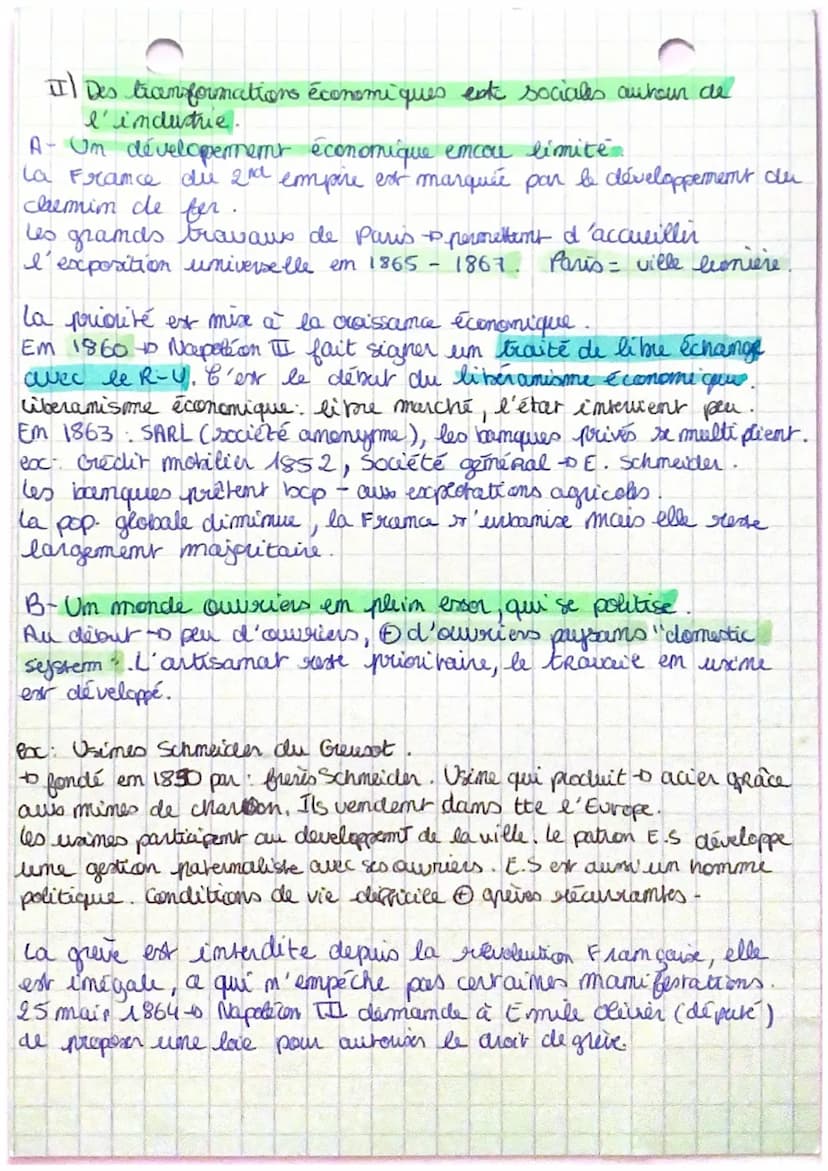 II) Des transformations économiques est sociales autour de
l'industrie.
A- Un dévelopement économique encore limité.
La France du 2nd empire est marquée par le développement du
chemin de fer.
Les grands travaux de Paris → permettent d'accueillir
l'exposition universelle en 1865 - 1867. Paris = ville lumière.
La priorité est mise à la croissance économique.
En 1860 → Napoléon III fait signer un traité de libre échange
avec le R-U. C'est le début du libéramisme économique.
Liberamisme économique: libre marché, l'état intervient peu.
En 1863 : SARL (société anonyme), les banques privés se multiplient.
ex: Crédit mobilier 1852, Société général → E. Schneider.
Les banques prêtent bcp - aux exploitations agricoles.
La pop. globale diminue, la France s'urbanise mais elle reste
largement majoritaire.
B- Un monde ouvriers en plein essor, qui se politise.
Au début → peu d'ouvriers, ⊕ d'ouvriers paysans "domestic
system". L'artisanat reste prioritaire, le travail en usine
est développé.
Ex: Usines Schneider du Creusot.
→ fondé en 1830 par : frères Schneider. Usine qui produit → acier grâce
aux mines de charbon. Ils vendent dans tte l'Europe.
Les usines participent au developpemt de la ville. Le patron E.S développe
une gestion paternaliste avec ses ouvriers. E.S est aussi un homme
politique. Conditions de vie difficile ⊕ grèves récurrantes -
La grève est interdite depuis la révolution Française, elle
est inégale, ce qui n'empêche pas certaines manifestations.
25 mais 1864 → Napoléon III demande à Emile Olivier (député)
de proposer une loie pour autoriser le droit de grève.